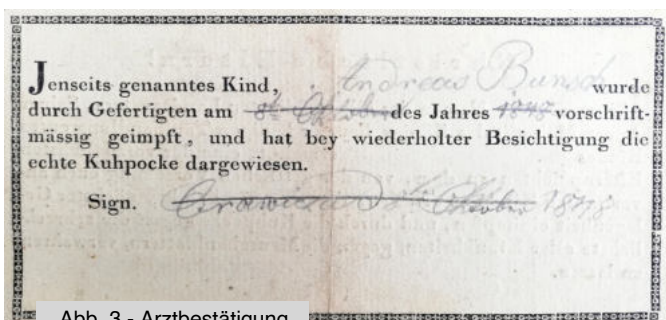 Jenseits genanntes Kind, Andreas Bunsch wurde
durch Gefertigten am 8t October des Jahres 1848 vorschrift-
mässig geimpft, und hat bey wiederholter Besichtigung die
echte Kuhpocke dargewiesen.
Sign. October 1848
Abb. 3 - Arztbestätigung